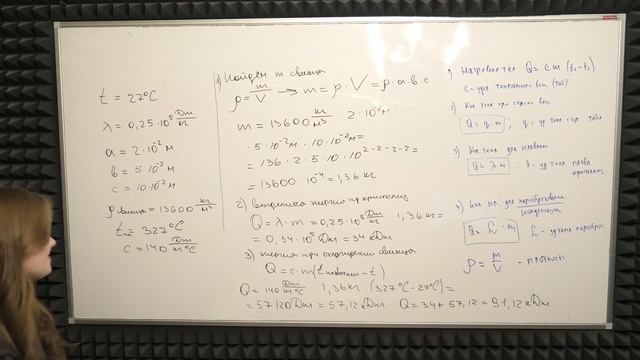 t = 27°C
λ = 0,25·10⁵ Дж/кг
a = 2·10⁻² м
b = 5·10⁻² м
c = 10·10⁻² м
ρ свинца = 13600 кг/м³
t = 327°C
c = 140 Дж/кг°C
1) Найдём m свинца
ρ = m/V → m = ρ · V = ρ · a · b · c
m = 13600 кг/м³ · 2·10⁻² м ·
· 5·10⁻² м · 10·10⁻² м =
= 136 · 2 · 5 · 10 · 10²⁻²⁻²⁻² =
= 13600 · 10⁻⁴ = 1,36 кг
2) энергия при кристализ
Q = λ · m = 0,25·10⁵ Дж/кг · 1,36 кг =
= 0,34·10⁵ Дж = 34 кДж
3) энергия при охлаждении свинца
Q = c · m (t плавления - t)
Q = 140 Дж/кг°C · 1,36 кг · (327°C - 27°C) =
= 57120 Дж = 57,12 кДж Q = 34 + 57,12 = 91,12 кДж
1) Нагревание тел. Q = c m (t₂ - t₁)
c - удел. теплоемкость
2) Кол. тепла при сгорании
Q = q m , q = уд тепл сгор. топл.
3) Кол. тепла для плавлен
Q = λ m λ - ур тепл. плавл
4) Кол для парообразования
конденсации
Q = L · m L - уд тепл парообр.
ρ = m/V - плотность